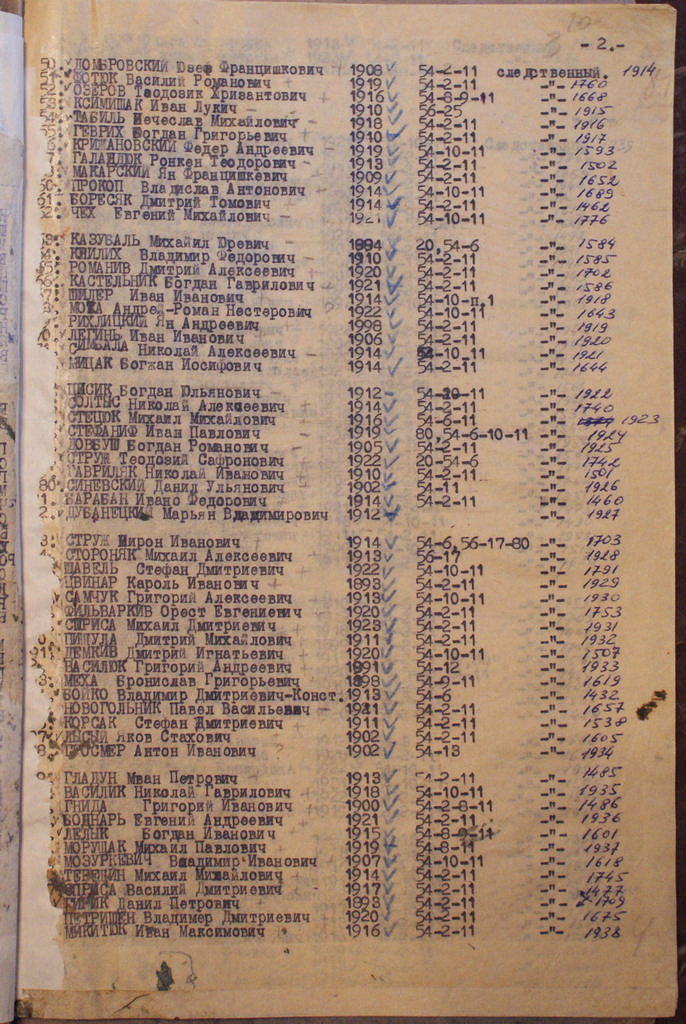 - 2.-
50. ДОМБРОВСКИЙ Юзеф Францишкович 1908 54-2-11 следственный. 1914
51. ФОТЮК Василий Романович 1919 54-2-11 -"- 1760
52. ОЗЕРОВ Теодозик Хривантович 1916 54-8-9-11 -"- 1668
53. КСИМИШАК Иван Лукич 1910 56-25 -"- 1915
54. ТАБИЛЬ Мечеслав Михайлович 1918 54-2-11 -"- 1916
55. ГЕВРИХ Богдан Григорьевич 1910 54-2-11 -"- 1917
6. КРИЖАНОВСКИЙ Федер Андреевич 1919 54-10-11 -"- 1593
7. ГАЛАНДЮК Ронкен Теодорович 1913 54-2-11 -"- 1502
МАКАРСКИЙ Ян Францишкевич 1909 54-2-11 -"- 1652
ПРОКОП Владислав Антонович 1914 54-10-11 -"- 1689
61. БОРЕСЯК Дмитрий Томович 1914 54-2-11 -"- 1462
ЧЕХ Евгений Михайлович 1921 54-10-11 -"- 1776
КАЗУБАЛЬ Михаил Юревич 1894 20,54-6 -"- 1584
КВИЛИХ Владимир Федорович 1910 54-2-11 -"- 1585
РОМАНИВ Дмитрий Алексеевич 1920 54-2-11 -"- 1702
КАСТЕЛЬНИК Богдан Гаврилович 1921 54-2-11 -"- 1586
ШИЛЕР Иван Иванович 1914 54-10-п.1 -"- 1918
МОХА Андрей-Роман Нестерович 1922 54-10-11 -"- 1643
РИХЛИЦКИЙ Ян Андреевич 1998 54-2-11 -"- 1919
ЛЕГИНЬ Иван Иванович 1906 54-2-11 -"- 1920
СИМБАЛА Николай Алексеевич 1914 54-10-11 -"- 1921
МИЦАК Богжан Иосифович 1914 54-2-11 -"- 1644
ЦИСИК Богдан Юльянович 1912 54-10-11 -"- 1922
СОЛТЫС Николай Алексеевич 1914 54-2-11 -"- 1740
СТЕЦЮК Михаил Михайлович 1916 54-6-11 -"- 1923
СТЕФАНИФ Иван Павлович 1919 80,54-6-10-11 -"- 1924
ДОВБУШ Богдан Романович 1905 54-2-11 -"- 1925
СТРУЖ Теодозий Сафронович 1922 20-54-6 -"- 1742
ГАВРИЛЯК Николай Иванович 1910 54-2-11 -"- 1501
80. СИНЕВСКИЙ Данил Ульянович 1902 54-11 -"- 1926
1. БАРАБАН Ивано Федорович 1914 54-2-11 -"- 1460
2. ДУБАНЕЦКИЙ Марьян Владимирович 1912 -"- 1927
3. СТРУЖ Мирон Иванович 1914 54-6,56-17-80 -"- 1703
СТОРОНЯК Михаил Алексеевич 1913 56-17 -"- 1928
ШАВЕЛЬ Стефан Дмитриевич 1922 54-10-11 -"- 1791
ЦВИНАР Кароль Иванович 1893 54-2-11 -"- 1929
САМЧУК Григорий Алексеевич 1913 54-10-11 -"- 1930
ФИЛЬВАРКИВ Орест Евгениевич 1920 54-2-11 -"- 1753
СПРИСА Михаил Дмитриевич 1923 54-2-11 -"- 1931
ПИЦУЛА Дмитрий Михайлович 1911 54-2-11 -"- 1932
ЛЕМКИВ Дмитрий Игнатьевич 1920 54-10-11 -"- 1507
ВАСИЛЮК Григорий Андреевич 1891 54-12 -"- 1933
МЕХА Бронислав Григорьевич 1898 54-9-11 -"- 1619
БОЙКО Владимир Дмитриевич-Конст. 1913 54-6 -"- 1432
НОВОГОЛЬНИК Павел Васильевич 1921 54-2-11 -"- 1657
КОРСАК Стефан Дмитриевич 1911 54-2-11 -"- 1538
ЛЫСЫЙ Яков Стахович 1902 54-2-11 -"- 1605
ГРОСМЕР Антон Иванович 1902 54-13 -"- 1934
ГЛАДУН Мван Петрович 1913 54-2-11 -"- 1485
ВАСИЛИК Николай Гаврилович 1918 54-10-11 -"- 1935
ГНИДА Григорий Иванович 1900 54-2-8-11 -"- 1486
БОДНАРЬ Евгений Андреевич 1921 54-2-11 -"- 1936
ЛЕЛЫК Богдан Иванович 1915 54-8-9-11 -"- 1601
МОРУШАК Михаил Павлович 1919 54-8-11 -"- 1937
МОЗУРКЕВИЧ Владимир Иванович 1907 54-10-11 -"- 1618
ТЕВЕЦИН Михаил Михайлович 1914 54-2-11 -"- 1745
СПРИСА Василий Дмитриевич 1917 54-2-11 -"- 1477
ГИРИК Данил Петрович 1893 54-2-11 -"- 1709
ПЕТРИШЕН Владимер Дмитриевич 1920 54-2-11 -"- 1675
МИКИТЮК Иван Максимович 1916 54-2-11 -"- 1938